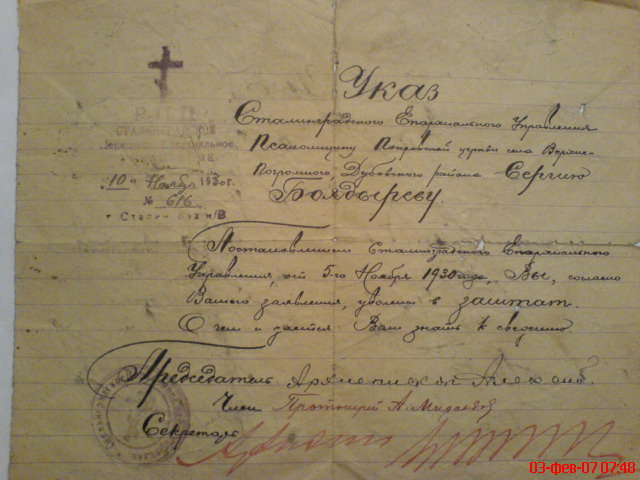 Указ
Сталинградского Епархиального Управления
Псаломщику Покровской церкви села Верхне-
Погромного, Дубовского района Сергию
Болдыреву.
СТАЛИНГРАДСКОЕ
10 Ноября 1930г.
№ 616
г. Сталинград н/В
Постановлением Сталинградского Епархиального
Управления, от 5-го Ноября 1930 года, Вы, согласно
Вашего заявления, уволены в заштат.
О чем и дается Вам знать к сведению.
Председатель Архиепископ
Член Протоиерей А.
Секретарь
03-фев-07 07:48